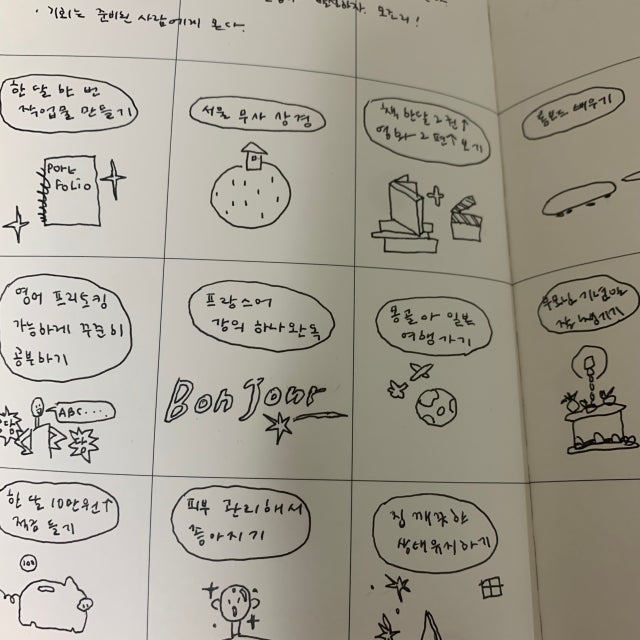 · 기회는 준비된 사람에게 온다.
한 달 한 번
작업물 만들기
서울 무사 상경
책 한달 2권↑
영화 2편↑ 보기
롱보드 배우기
PORT
FOLIO
영어 프리토킹
가능하게 꾸준히
공부하기
프랑스어
강의 하나 완독
몽골 or 일본
여행가기
기념일
ABC...
Bonjour
한 달 10만원↑
적금 들기
피부 관리해서
좋아지기
집 깨끗한
상태유지하기
100